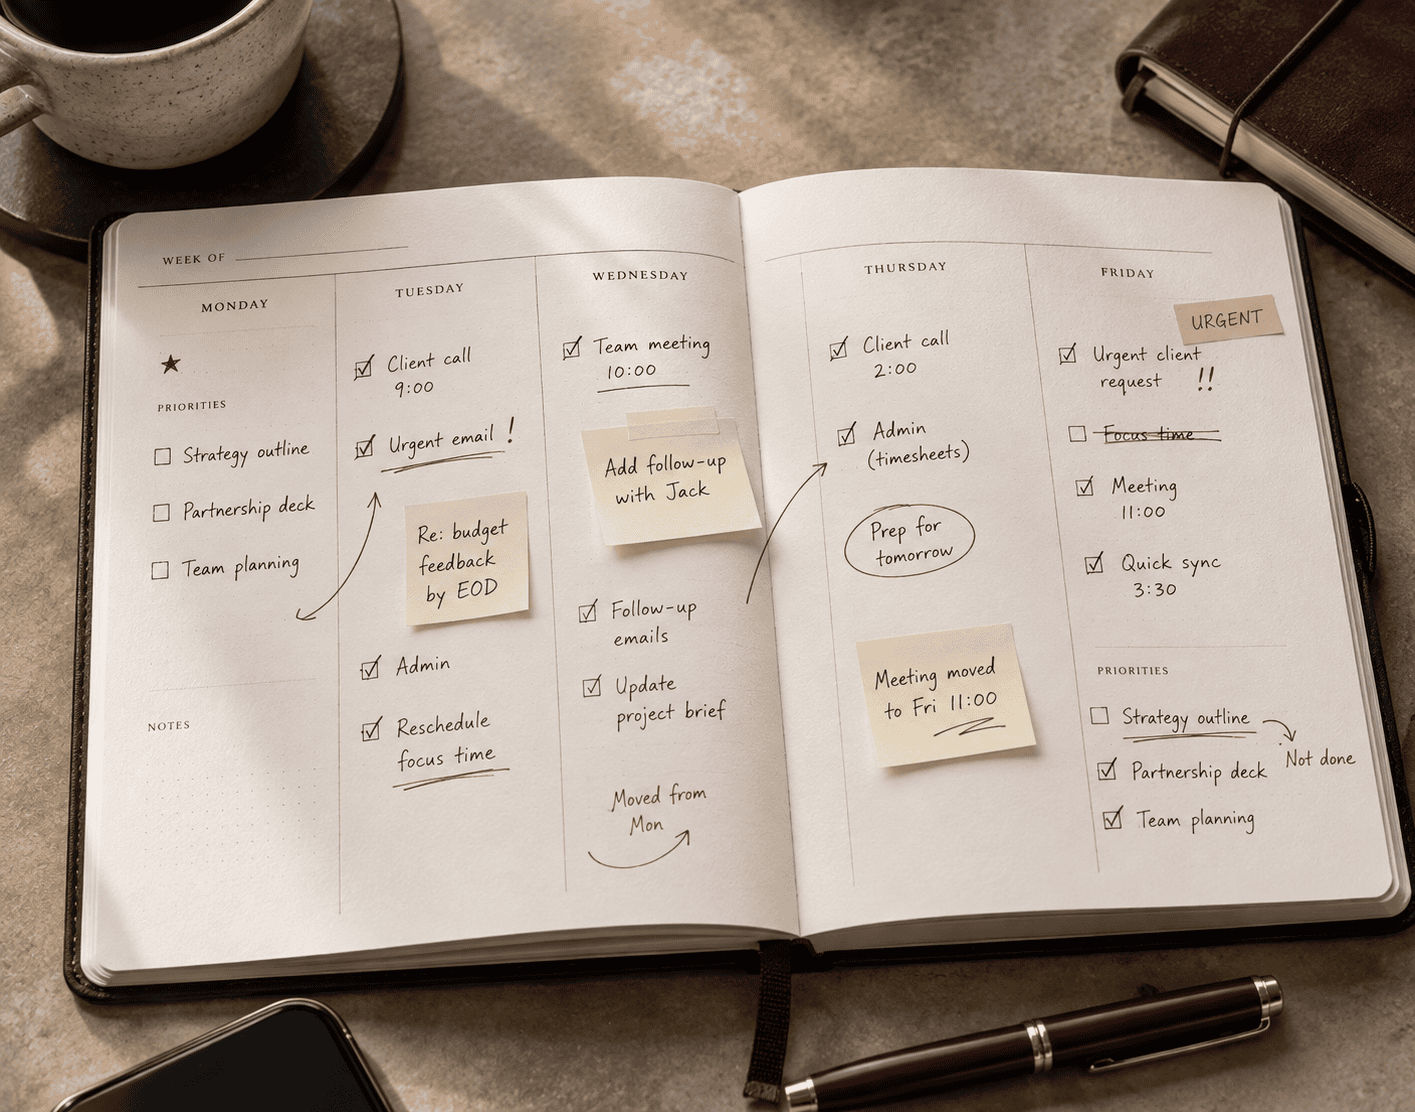 WEEK OF
MONDAY
★
PRIORITIES
Strategy outline
Partnership deck
Team planning
NOTES
TUESDAY
Client call
9:00
Urgent email !
Re: budget
feedback
by EOD
Admin
Reschedule
focus time
WEDNESDAY
Team meeting
10:00
Add follow-up
with Jack
Follow-up
emails
Update
project brief
Moved from
Mon
THURSDAY
Client call
2:00
Admin
(timesheets)
Prep for
tomorrow
Meeting moved
to Fri 11:00
FRIDAY
URGENT
Urgent client
request !!
Focus time
Meeting
11:00
Quick sync
3:30
PRIORITIES
Strategy outline
Not done
Partnership deck
Team planning